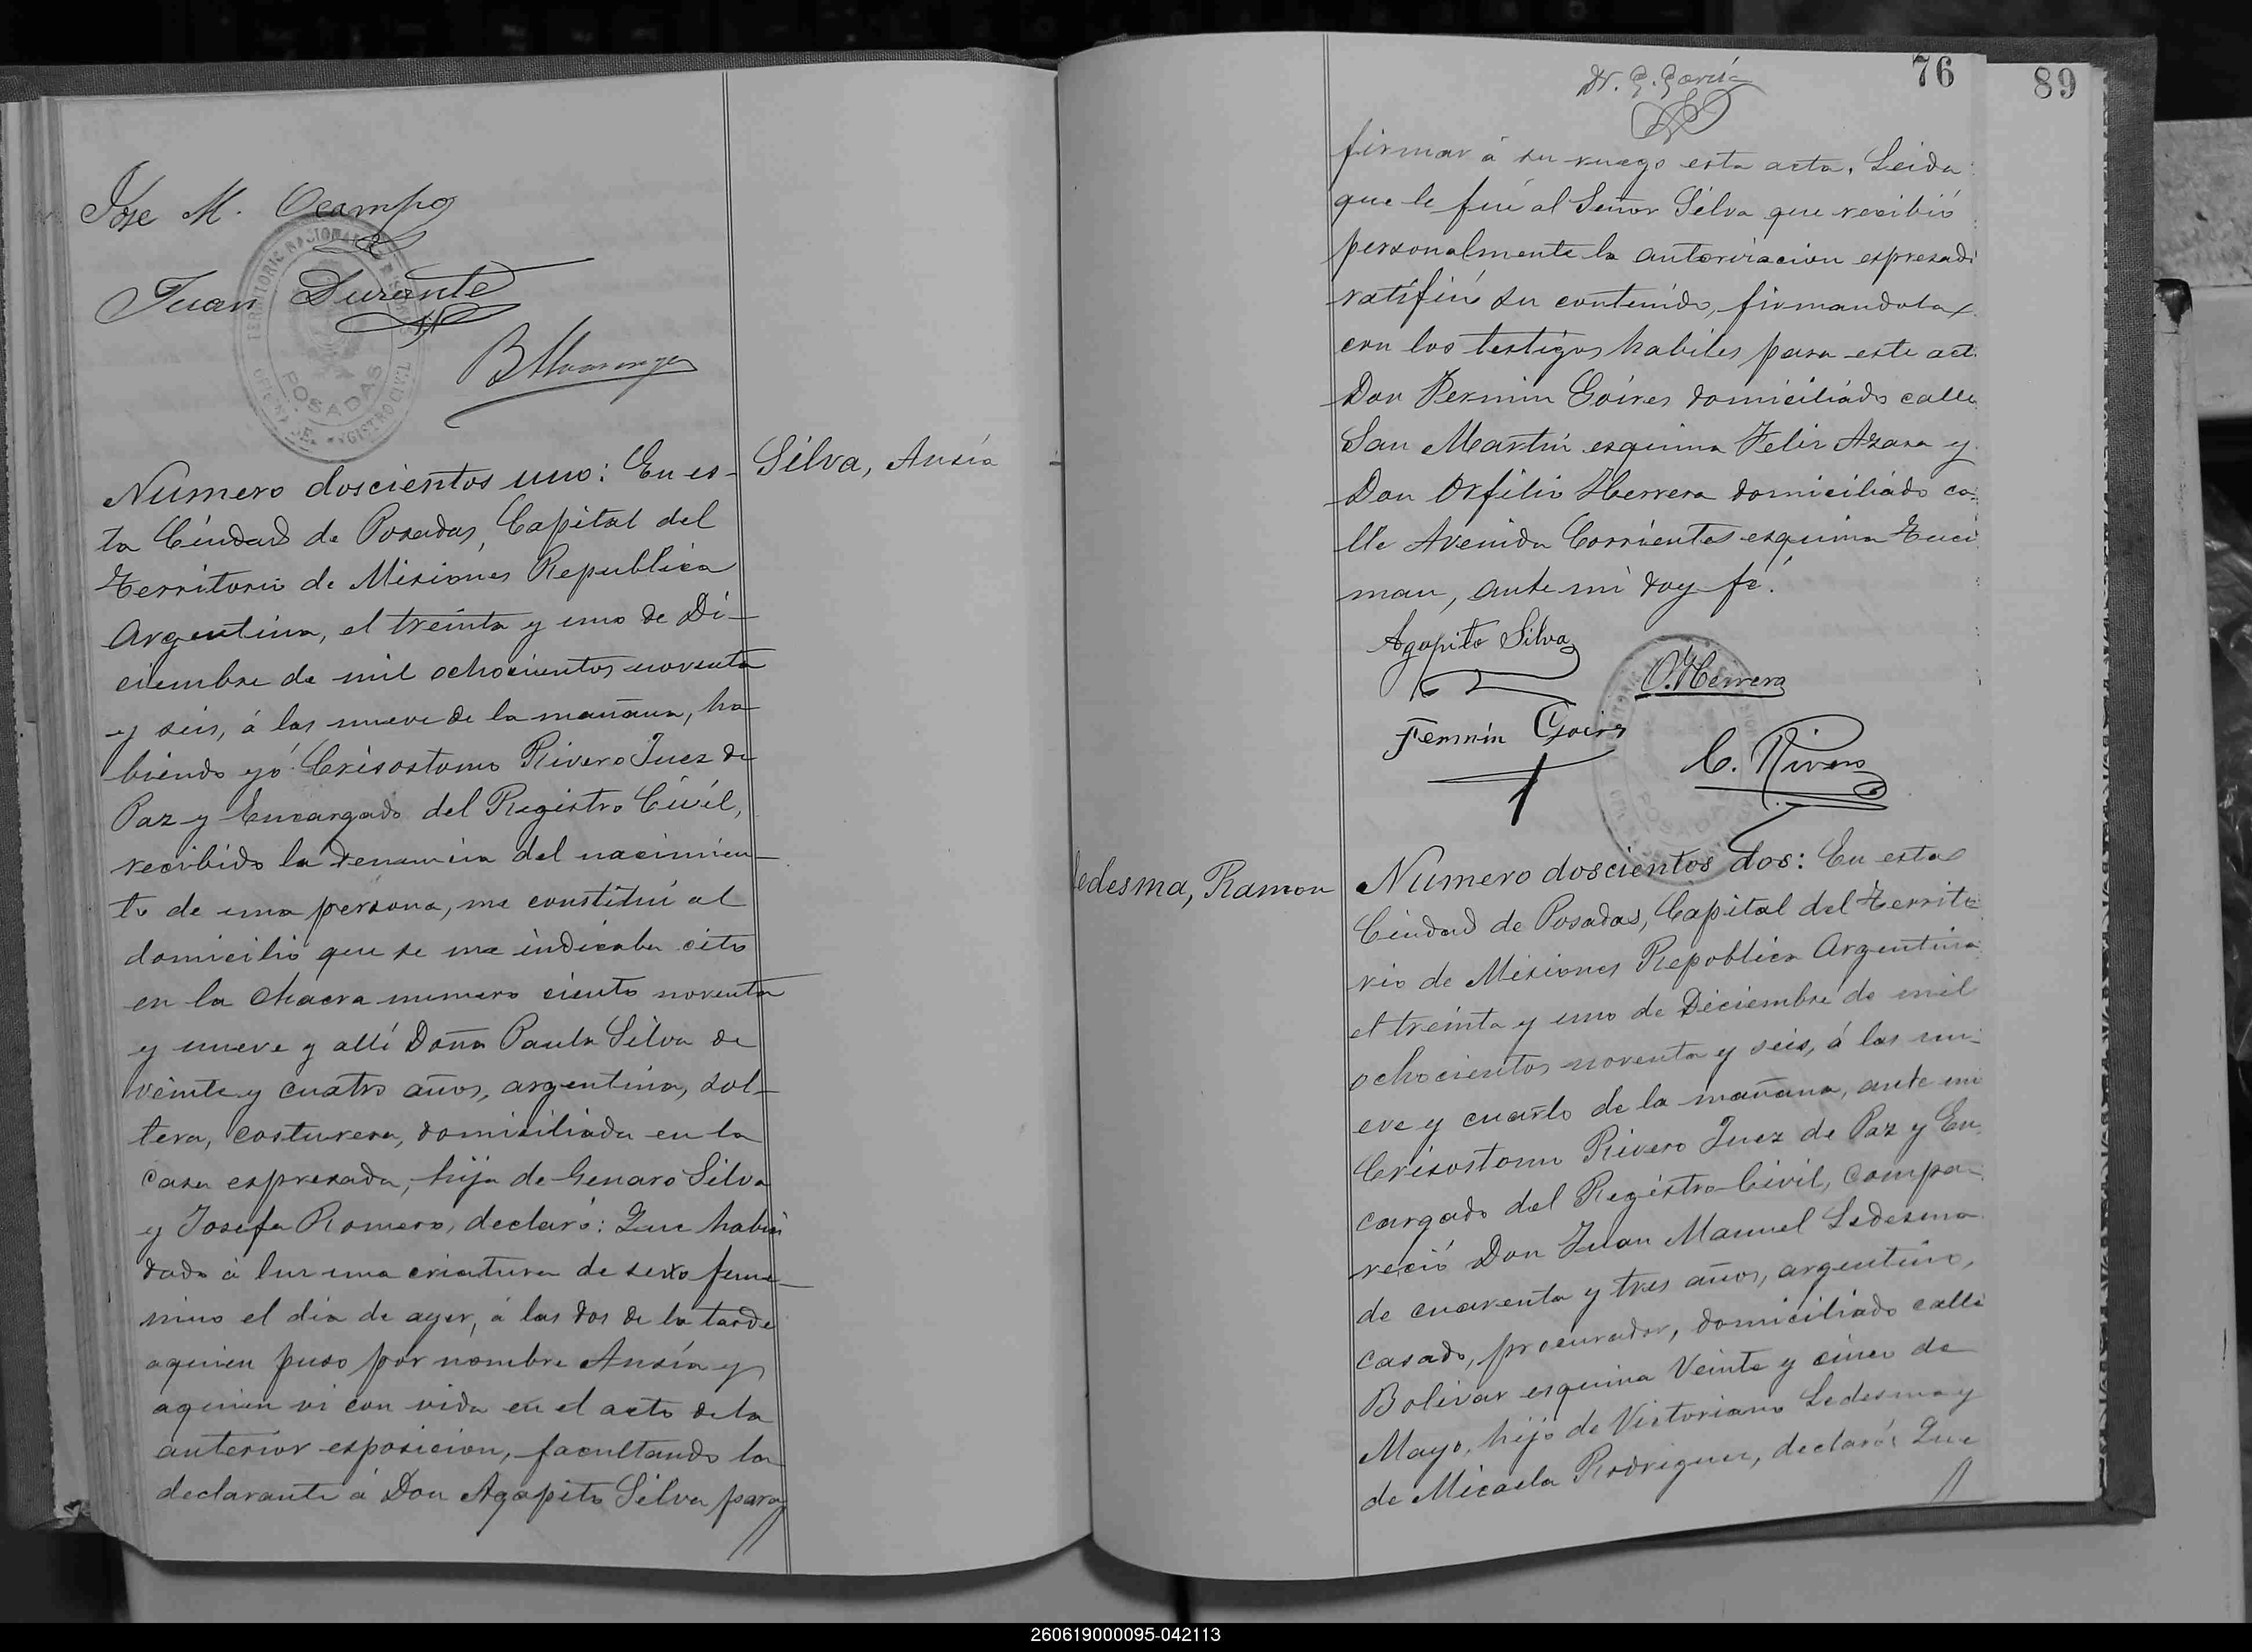 Jose M. Ocampo
Juan Durante
TERRITORIO NACIONAL DE MISIONES
POSADAS
OFICINA DEL REGISTRO CIVIL
Silva, Ausía
Numero doscientos uno: En es-
ta Ciudad de Posadas, Capital del
Territorio de Misiones Republica
Argentina, el treinta y uno de Di-
ciembre de mil ochocientos noventa
y seis, á las nueve de la mañana, ha
biendo yó Crisostomo Rivero Juez de
Paz y Encargado del Registro Civil,
recibido la denuncia del nacimien-
to de una persona, me constituí al
domicilio que se me indicaba cito
en la chacra numero ciento noventa
y nueve y allí Doña Paula Silva de
veinte y cuatro años, argentina, sol-
tera, costurera, domiciliada en la
casa espresada, hija de Genaro Silva
y Josefa Romero, declaró: Que habia
dado á luz una criatura de sexo feme-
nino el dia de ayer, á las dos de la tarde
aquien puso por nombre Ausía y
aquien vi con vida en el acto de la
anterior esposicion, facultando la
declarante á Don Agapito Silva para
Dr. G. García
76
89
firmar á su ruego esta acta. Leida
que le fué al Señor Silva que recibió
personalmente la autorizacion espresad
ratificó su contenido, firmandola
con los testigos habiles para este act
Don Fermin Goires domiciliado calle
San Martín esquina Felix Azara y
Don Orfilio Herrera domiciliado ca
lle Avenida Corrientes esquina Tucu
man, ante mi doy fé.
Agapito Silva
O. Herrera
Fermín Goires
C. Rivero
POSADAS
Ledesma, Ramon
Numero doscientos dos: En esta
Ciudad de Posadas, Capital del Territo
rio de Misiones Republica Argentina
el treinta y uno de Diciembre de mil
ochocientos noventa y seis, á las nu-
eve y cuarto de la mañana, ante mi
Crisostomo Rivero Juez de Paz y En
cargado del Registro Civil, compa-
reció Don Juan Manuel Ledesma
de cuarenta y tres años, argentino,
casado, procurador, domiciliado calle
Bolivar esquina Veinte y cinco de
Mayo, hijo de Victoriano Ledesma y
de Micaela Rodriguez, declaró: Que
260619000095-042113